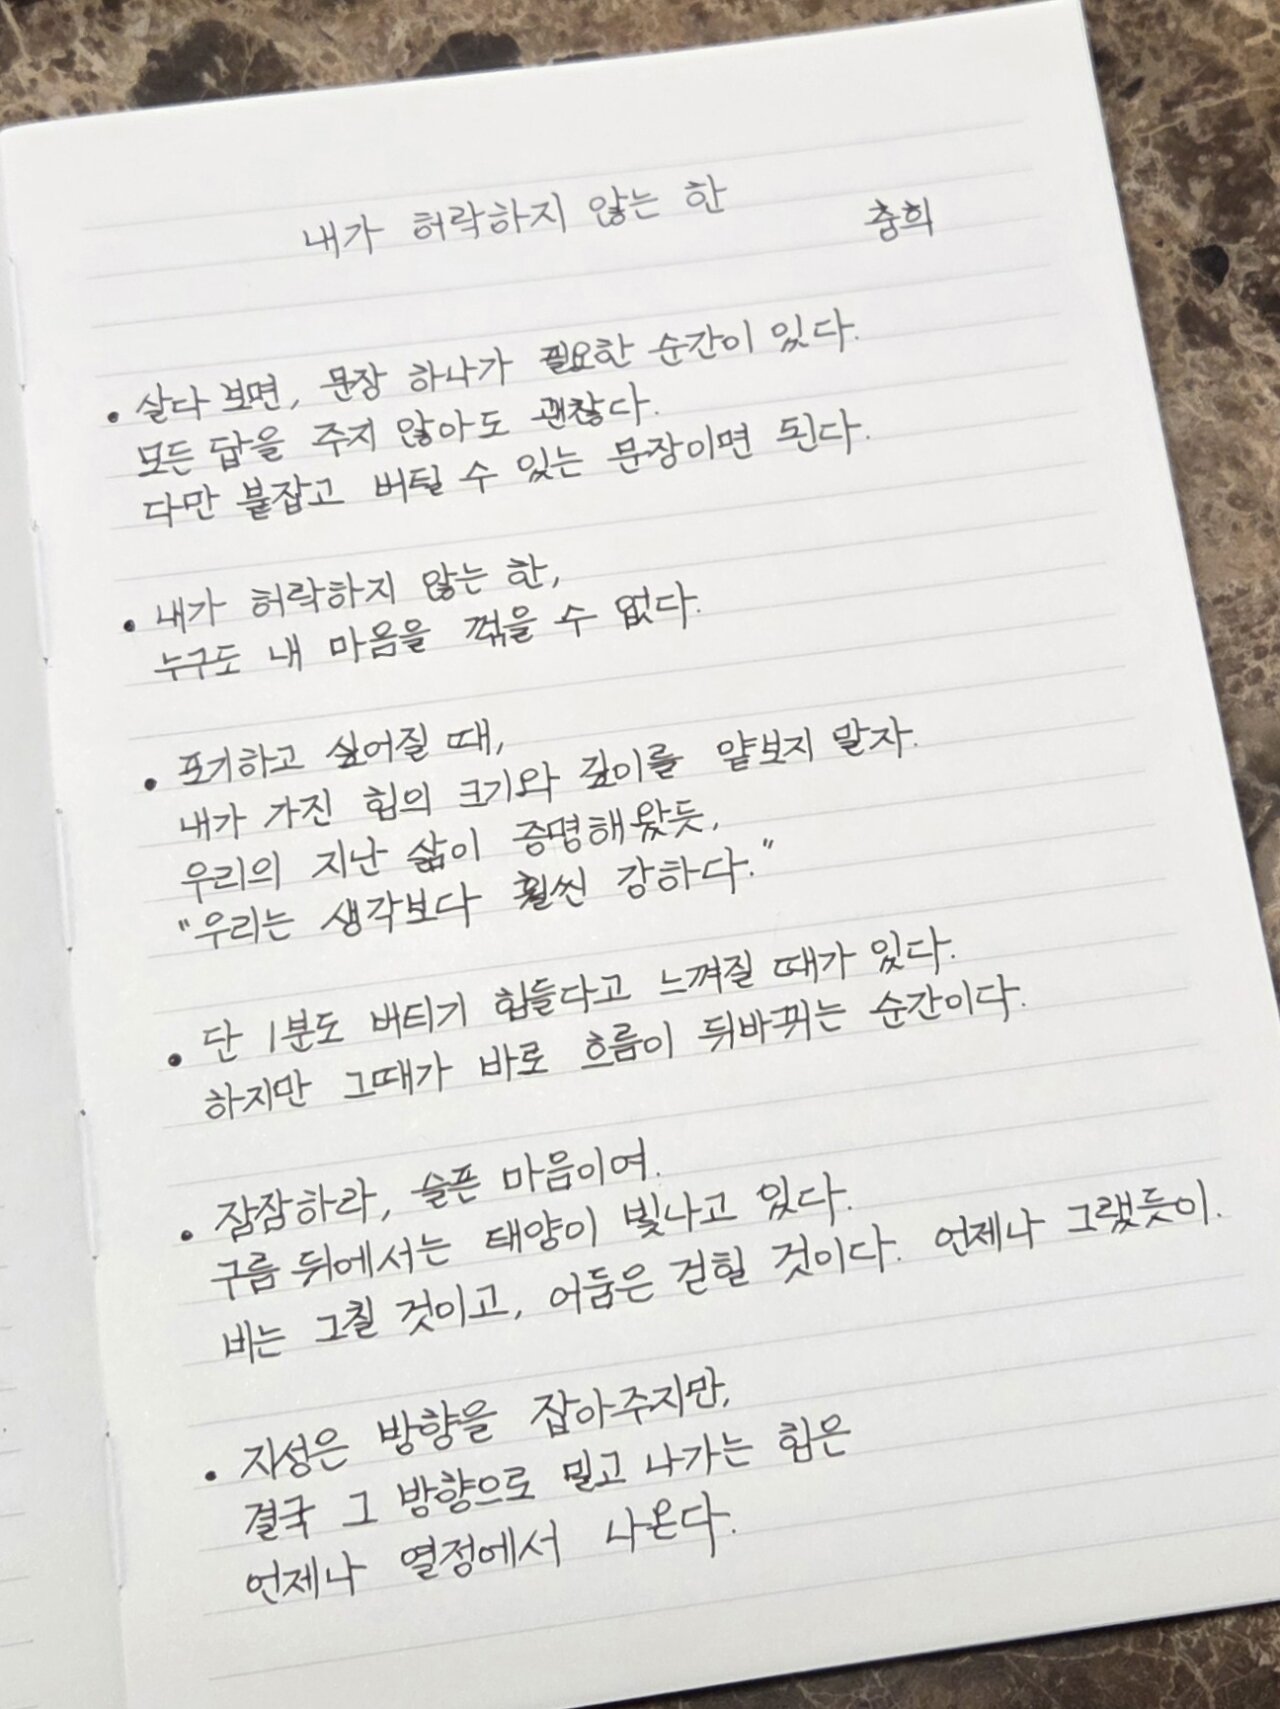 내가 허락하지 않는 한
충희
• 살다 보면, 문장 하나가 필요한 순간이 있다.
모든 답을 주지 않아도 괜찮다.
다만 붙잡고 버틸 수 있는 문장이면 된다.
• 내가 허락하지 않는 한,
누구도 내 마음을 꺾을 수 없다.
• 포기하고 싶어질 때,
내가 가진 힘의 크기와 깊이를 얕보지 말자.
우리의 지난 삶이 증명해왔듯,
"우리는 생각보다 훨씬 강하다."
• 단 1분도 버티기 힘들다고 느껴질 때가 있다.
하지만 그때가 바로 흐름이 뒤바뀌는 순간이다.
• 잠잠하라, 슬픈 마음이여.
구름 뒤에서는 태양이 빛나고 있다.
비는 그칠 것이고, 어둠은 걷힐 것이다. 언제나 그랬듯이.
• 지성은 방향을 잡아주지만,
결국 그 방향으로 밀고 나가는 힘은
언제나 열정에서 나온다.